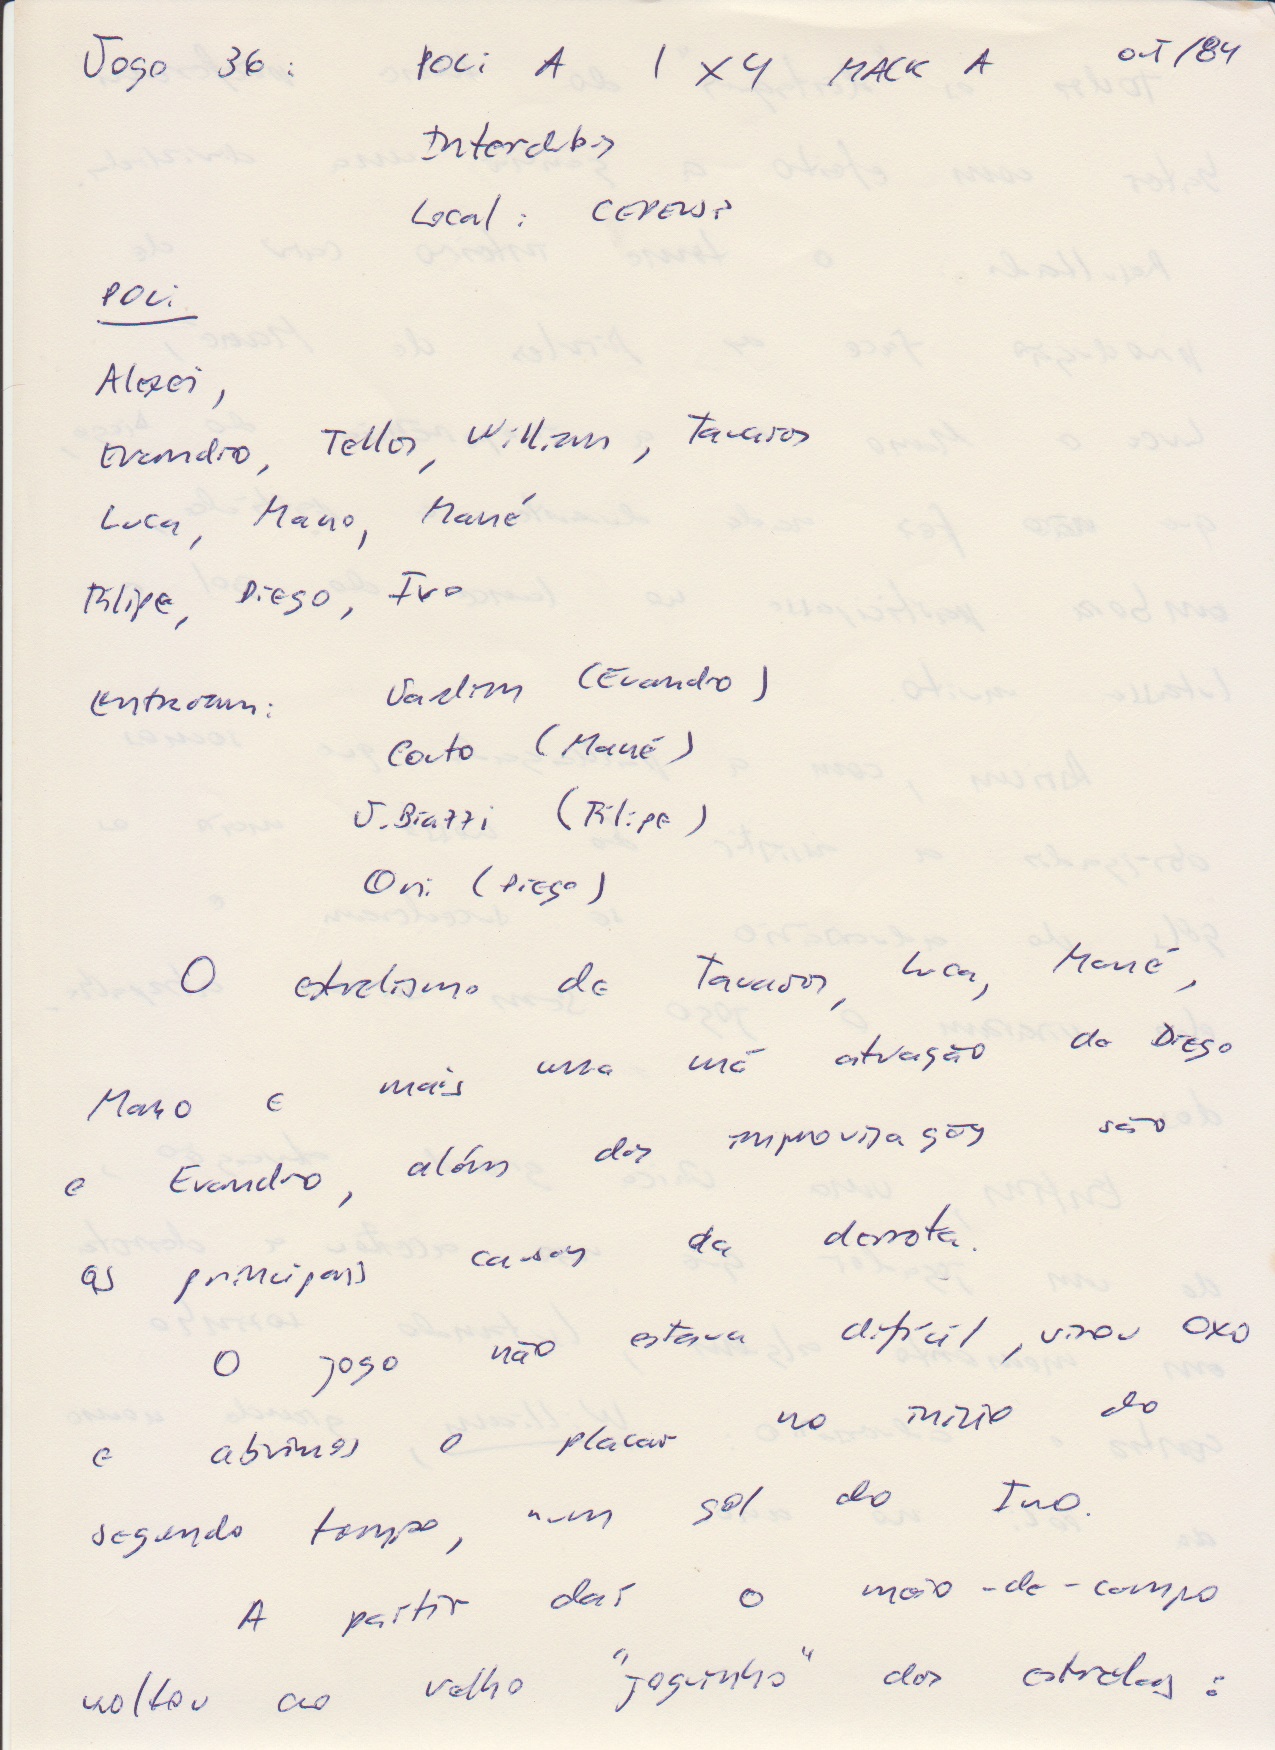 Jogo 36: POLI A 1 X 4 MACK A out/84
Interclubes
Local: CEPEUSP
POLI
Alexei,
Evandro, Telles, William, Tavares
Luca, Mano, Mané
Filipe, Diego, Ivo
Entraram: Jardim (Evandro)
Couto (Mané)
J. Biazzi (Filipe)
Ori (Diego)
O estrelismo de Tavares, Luca, Mané,
Mano e mais uma má atuação do Diego
e Evandro, além das improvisações são
as principais causas da derrota.
O jogo não estava difícil, virou 0x0
e abrimos o placar no início do
segundo tempo, num gol do Ivo.
A partir daí o meio-de-campo
voltou ao velho "joguinho" das estrelas: